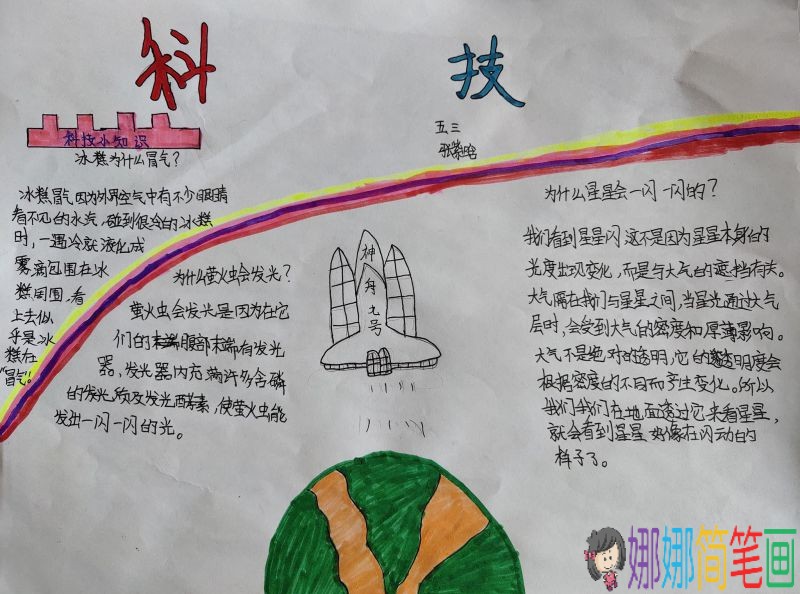 科技
五三
张紫晗
科技小知识
冰糕为什么冒气？
冰糕冒气因为外界空气中有不少眼睛
看不见的水汽，碰到很冷的冰糕
时，一遇冷就液化成
雾滴包围在冰
糕周围，看
上去似
乎是冰
糕在
"冒气"。
为什么萤火虫会发光？
萤火虫会发光是因为在它
们的腹部末端有发光
器，发光器内充满许多含磷
的发光质及发光酵素，使萤火虫能
发出一闪一闪的光。
神舟九号
为什么星星会一闪一闪的？
我们看到星星闪这不是因为星星本身的
光度出现变化，而是与大气的遮挡有关。
大气隔在我们与星星之间，当星光通过大气
层时，会受到大气的密度和厚薄影响。
大气不是绝对的透明，它的透明度会
根据密度的不同而产生变化。所以
我们我们在地面透过它来看星星，
就会看到星星好像在闪动的
样子了。
娜娜简笔画